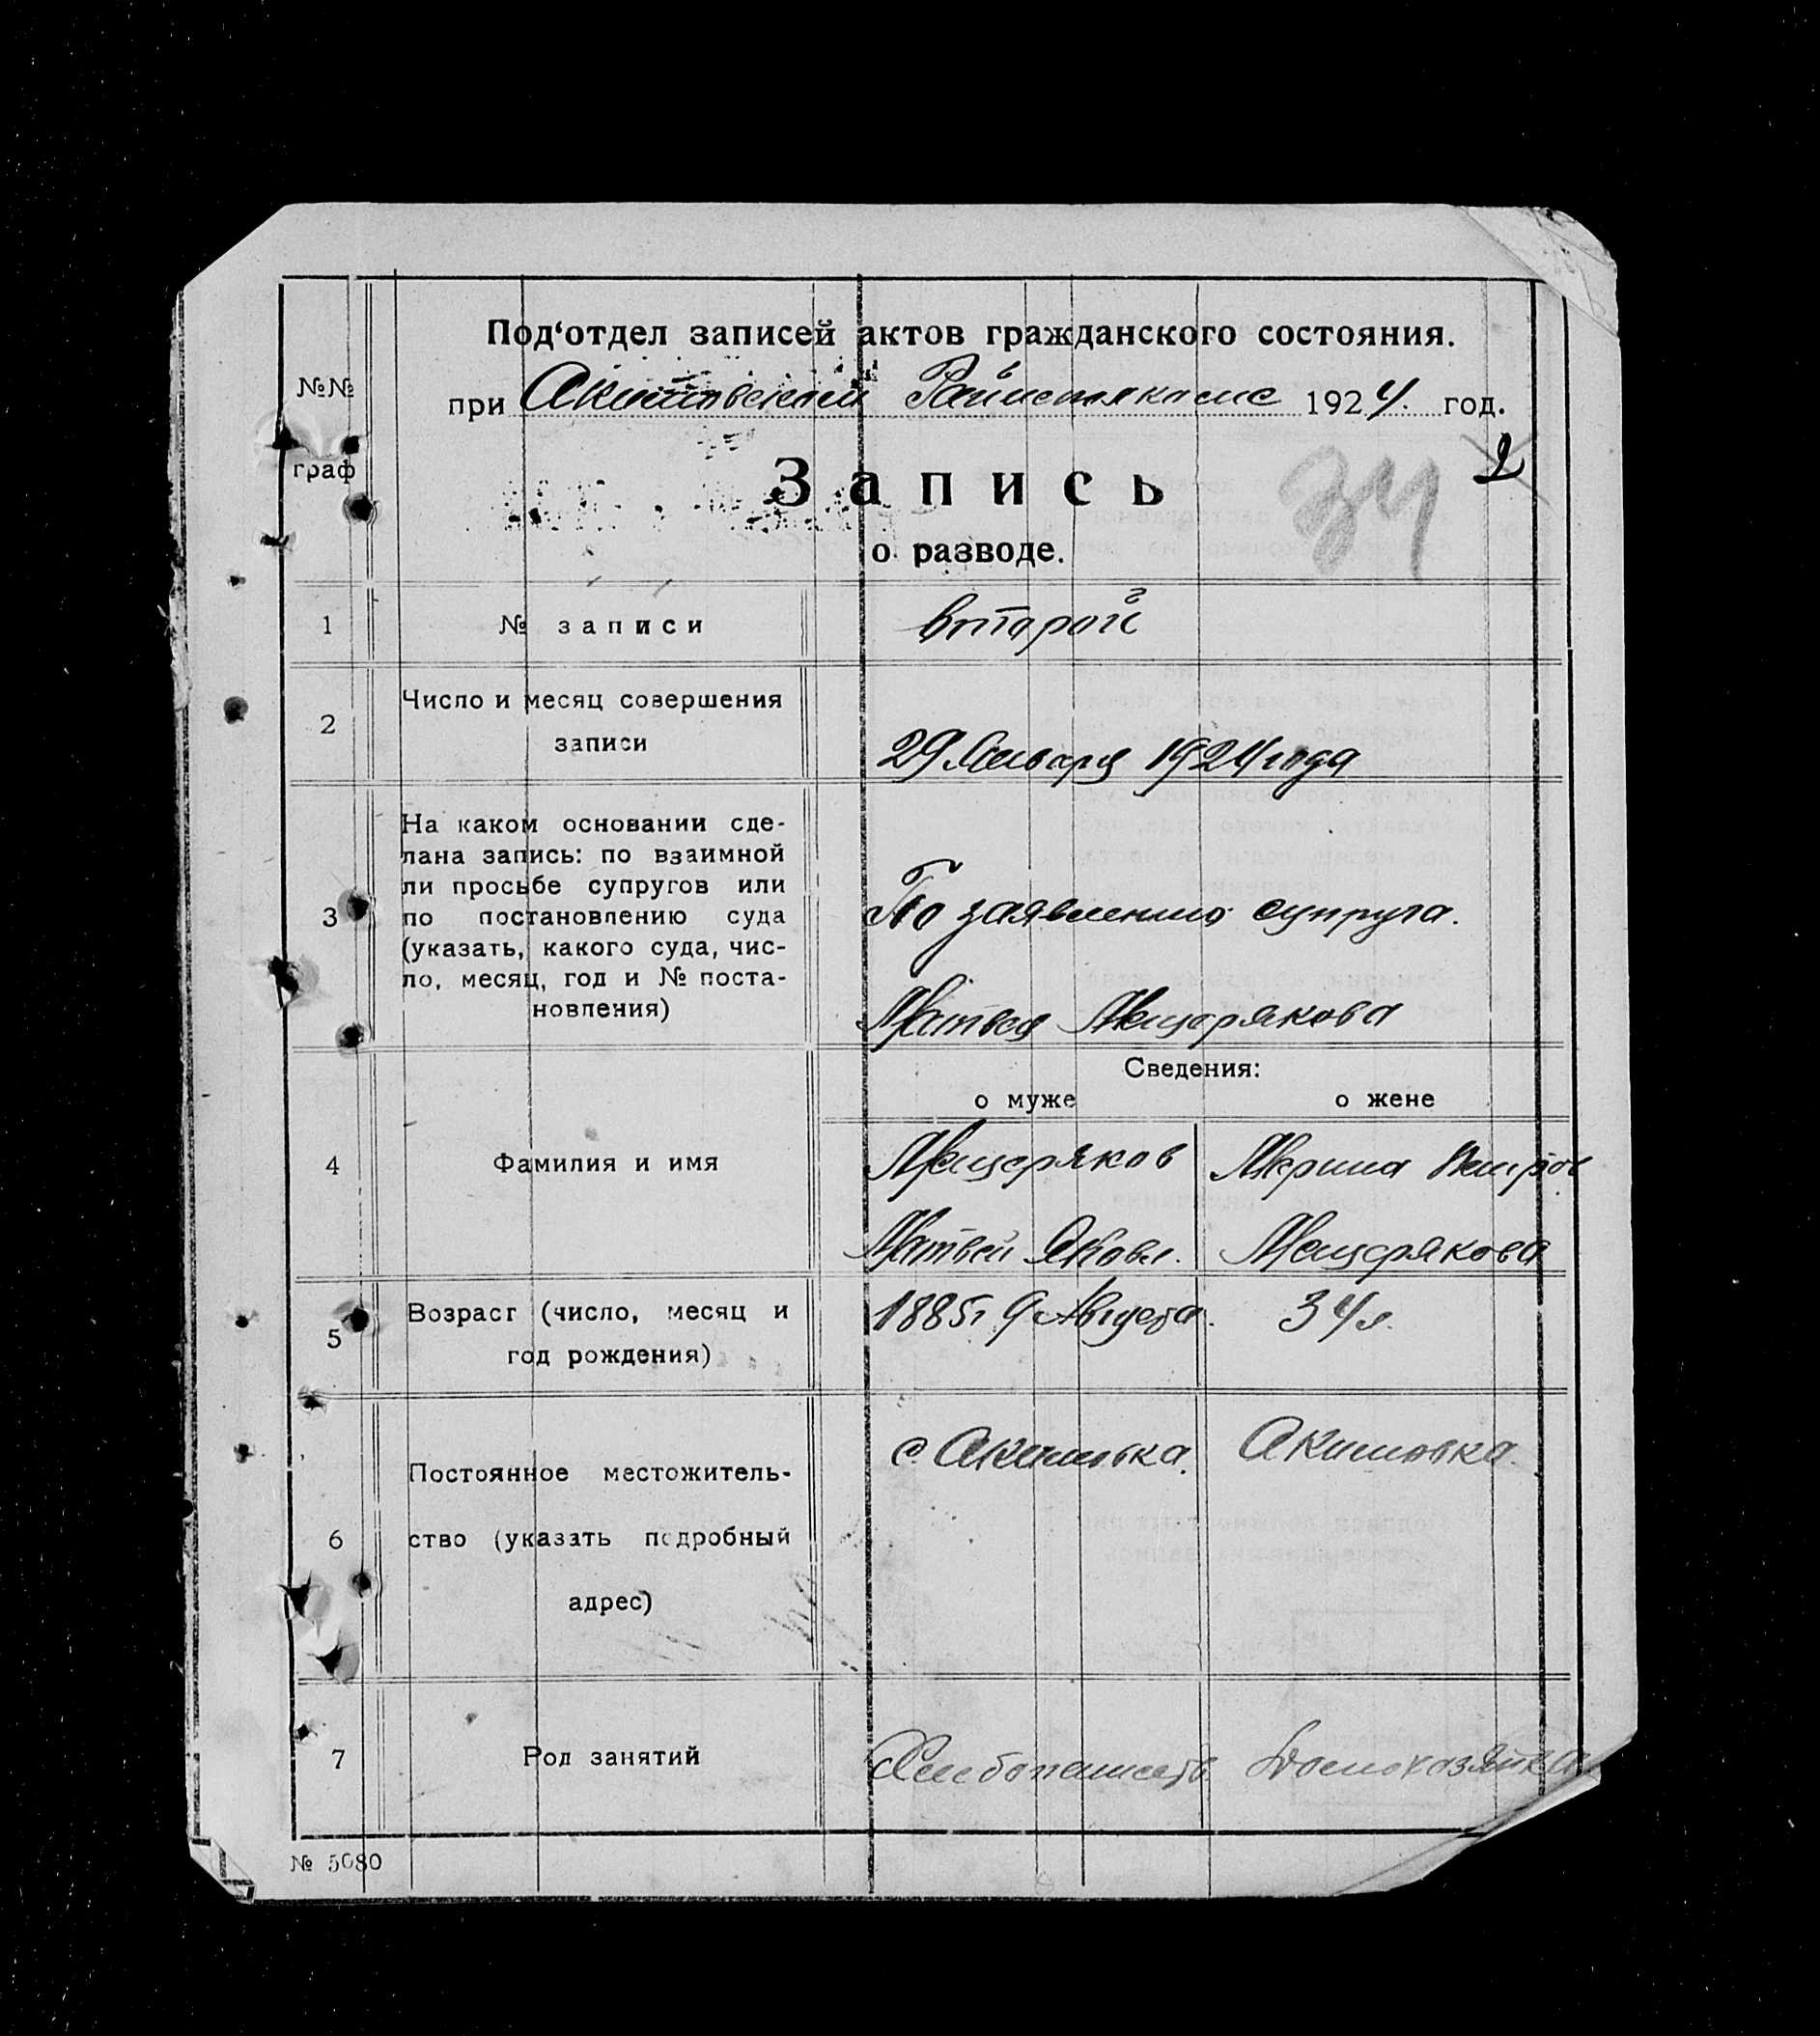 Под‘отдел записей актов гражданского состояния.
№№
при Акимовском Райисполкоме 1924. год.
2
граф
Запись
34
о разводе.
1 № записи второй
2 Число и месяц совершения
записи 29 Января 1924 года
На каком основании сде-
лана запись: по взаимной
ли просьбе супругов или
3 по постановлению суда По заявлению супруга.
(указать, какого суда, чис-
ло, месяц, год и № поста-
новления) Матвея Мещерякова
Сведения:
о муже о жене
4 Фамилия и имя Мещеряков Петров
Матвей Яковл. Мещерякова
5 Возраст (число, месяц и 1885г 9 Августа. 34 л.
год рождения)
с. Акимовка. Акимовка.
Постоянное местожитель-
6 ство (указать подробный
адрес)
7 Род занятий Хлебопашеств. Домохозяйка
№ 5080